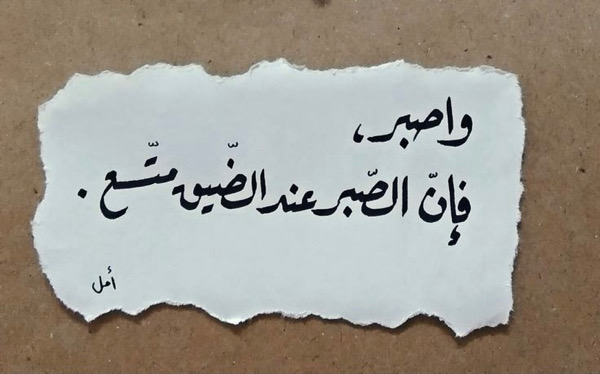 واصبر،
فإنّ الصّبر عند الضّيق متّسع .
أمل